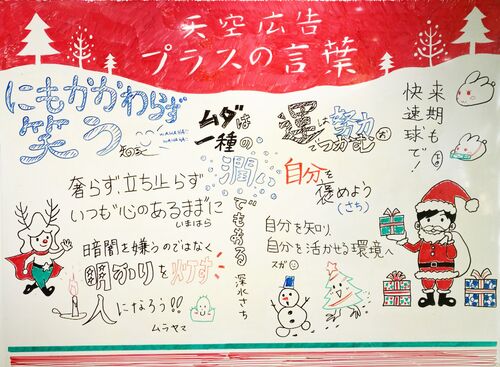 天空広告
プラスの言葉
にもかかわらず
笑う
HAHAHA
HAHAHA
ムダは
一種の
潤い
でもある
深水さち
運は努力
でつかむ
自分を
褒めよう
(さち)
来期も
快速球で!
奢らず、立ち止らず
いつも“心のあるまま”に
いまはら
暗闇を嫌うのではなく
明かりを灯す
人になろう!!
ムラヤマ
自分を知り、
自分を活かせる環境へ
スガ